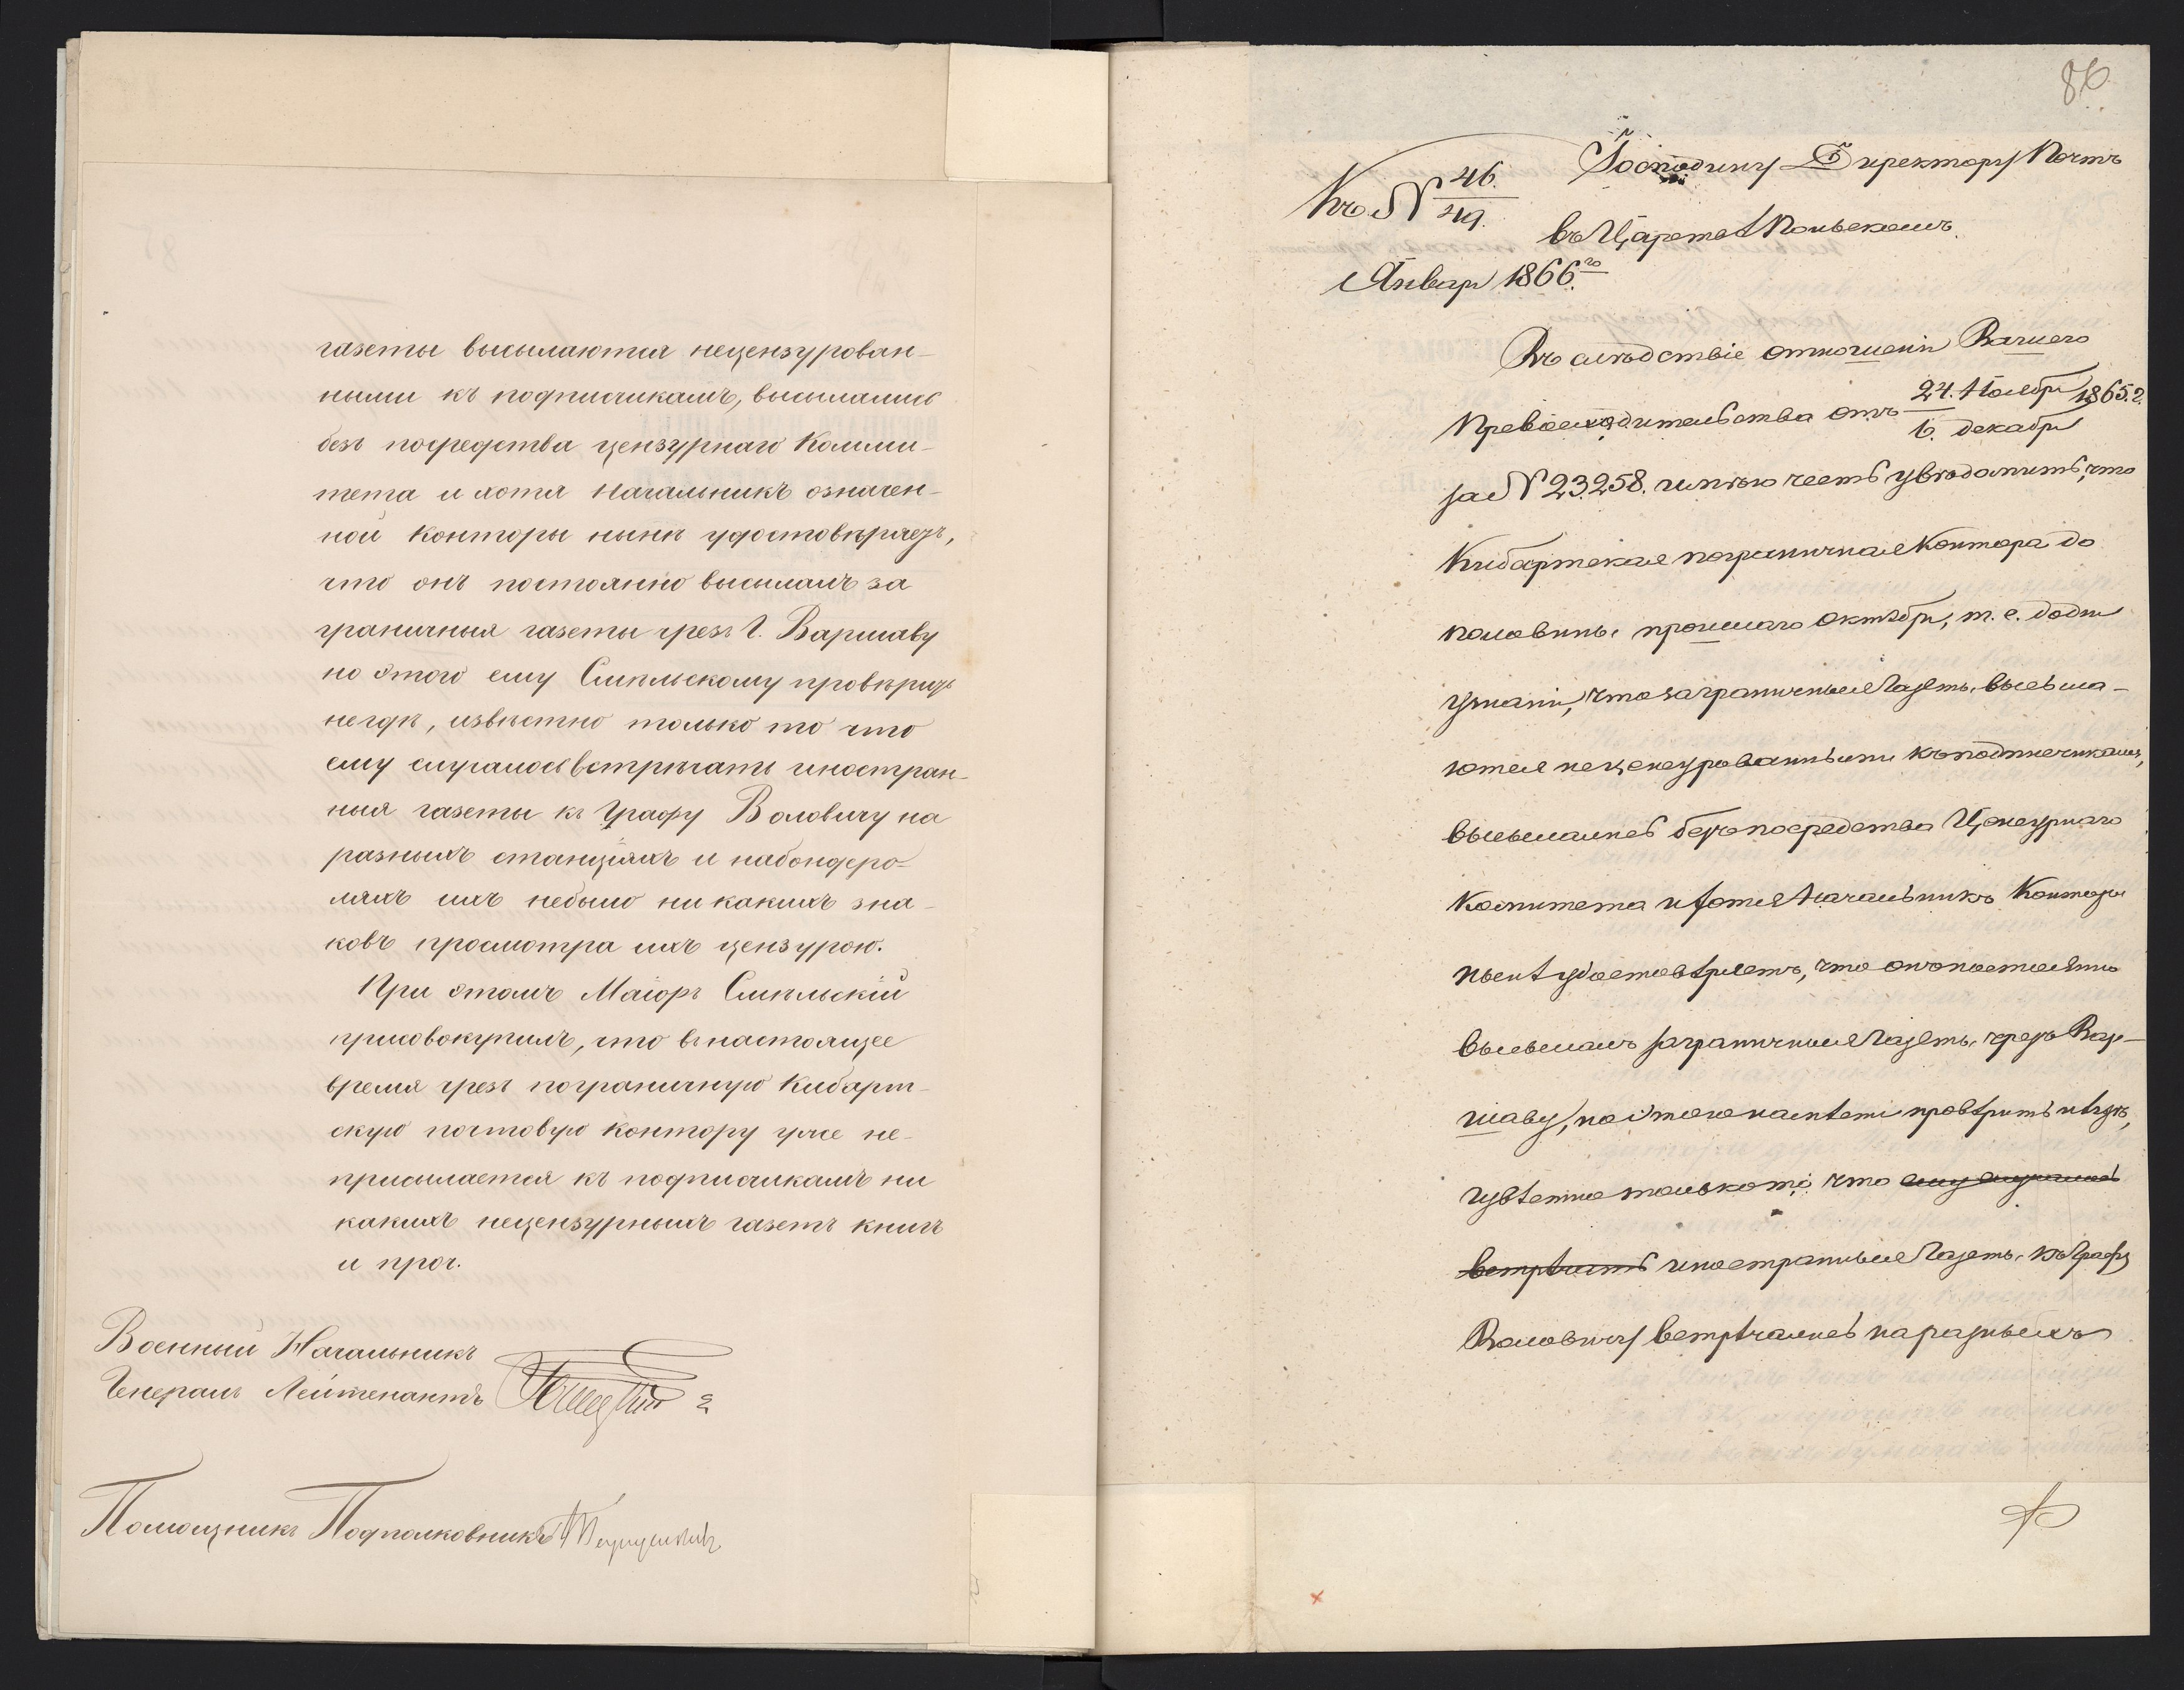 газеты высылаются нецензурован-
ными къ подписчикамъ, высылались
безъ посредства цензурнаго Комми-
тета и хотя Начальникъ означен-
ной конторы нынѣ удостовѣряетъ,
что онъ постоянно высылалъ за
граничныя газеты чрезъ Г. Варшаву
но этого ему Смѣльскому провѣрить
негдѣ, извѣстно только то что
ему случалось встрѣчать иностран-
ныя газеты къ Графу Воловичу на
разныхъ станціяхъ и набондеро-
ляхъ ихъ небыло ни какихъ зна-
ковъ просмотра ихъ цензурою.
При этомъ Маіоръ Смѣльскій
присовокупилъ, что внастоящее
время чрезъ пограничную Кибарт-
скую почтовую контору уже не-
присылается къ подписчикамъ ни
какихъ нецензурныхъ газетъ книгъ
и проч.
Военный Начальникъ
Генералъ Лейтенантъ
Помощникъ Подполковникъ
86
Господину Директору Почтъ
въ Царствѣ Польскомъ.
Къ № 46./49.
Январ 1866.го
Въ слѣдствіе отношенія Вашего
Превосходительства отъ 24. Ноября/6. декабря 1865. г.
за № 23258. имѣю честь увѣдомить, что
Кибартская пограничная Контора до
половины прошлаго октября, т. е. до дня
узнанія, что заграничныя газеты, высыла-
ются нецензурованными къ подписчикамъ,
высылались безъ посредства Цензурнаго
Комитета и хотя Начальникъ Конторы
нынѣ удостовѣряетъ, что онъ постоянно
высылалъ заграничныя газеты чрезъ Вар-
шаву, но этого на мѣстѣ провѣрить негдѣ,
извѣстно только то, что ему случалось
встрѣчать иностранныя газеты къ Графу
Воловичу встрѣчались на разныхъ